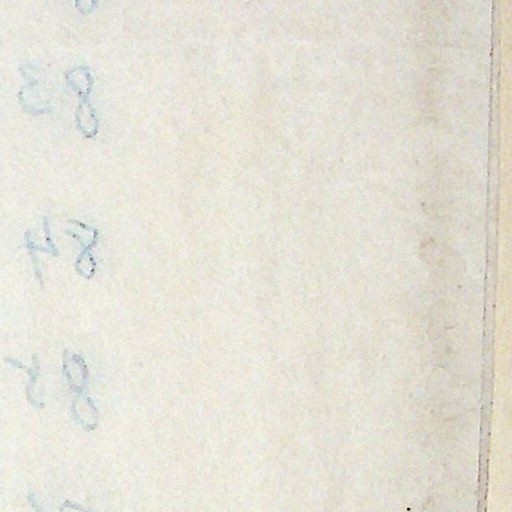 83
84
85